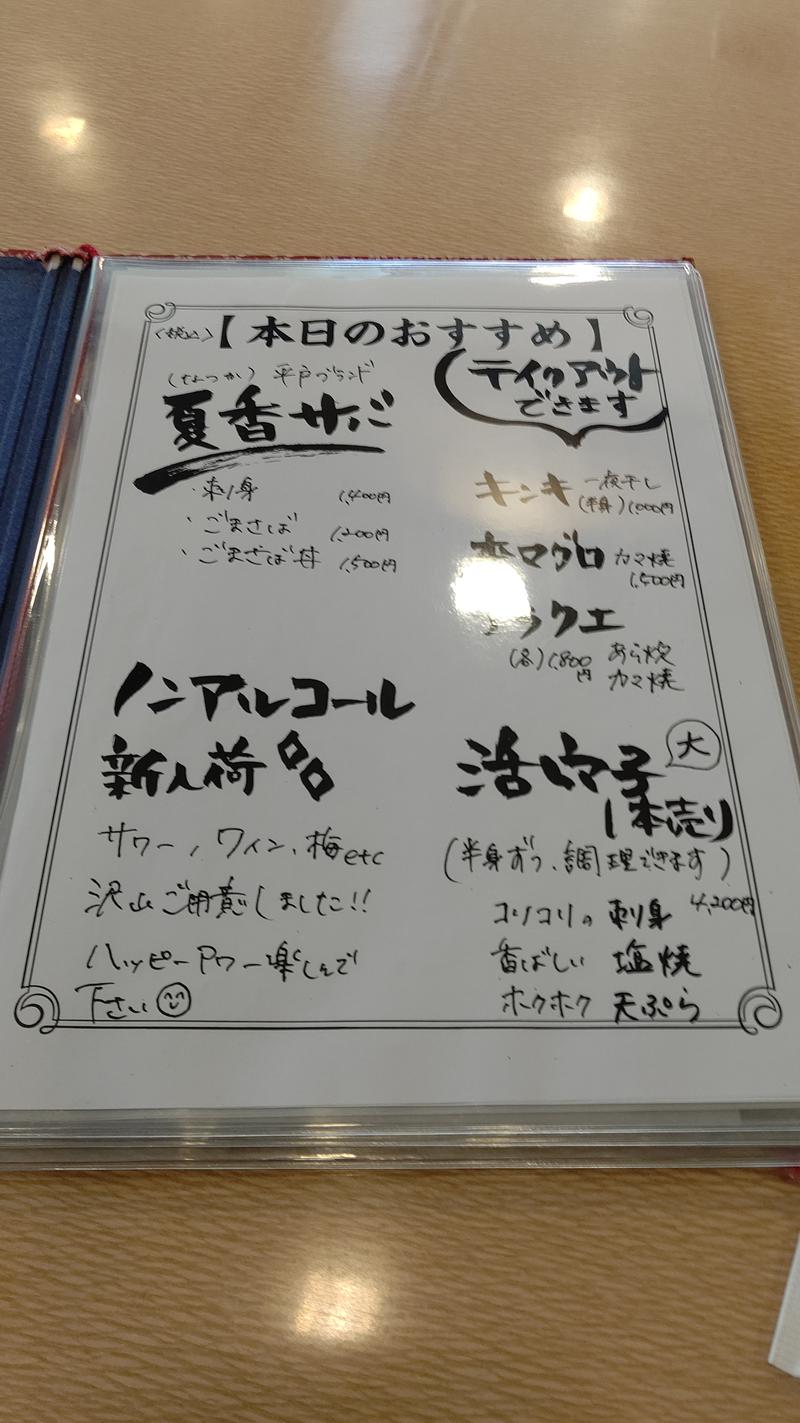 (税込)【本日のおすすめ】
(なつか) 平戸ブランド
夏香サバ
・刺身 1,400円
・ごまさば 1,200円
・ごまさば丼 1,500円
ノンアルコール
新入荷
サワー、ワイン、梅etc
沢山ご用意しました!!
ハッピーアワー楽しんで
下さい
テイクアウト
できます
キンキ 一夜干し
(半身) 1,000円
本マグロ カマ焼
1,500円
クエ
(各) 1,800円 あら炊
カマ焼
大
活
1本売り
(半身ずつ、調理できます)
4,200円
コリコリの 刺身
香ばしい 塩焼
ホクホク 天ぷら